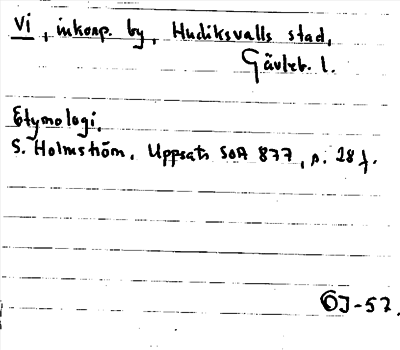 Vi, inkorp. by, Hudiksvalls stad,
Gävleb. l.
Etymologi.
S. Holmström, Uppsats SOA 877, s. 28 f.
OJ-57.